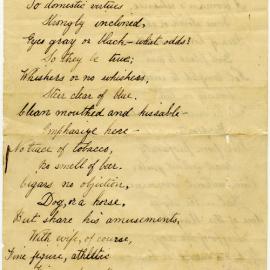 To domestic virtues
Strongly inclined,
Eyes gray or black – what odds?
So they be true;
Whiskers or no whiskers,
Steer clear of blue.
Clean mouthed and kissable –
Emphasize here –
No trace of tobacco,
No smell of beer.
Cigars no objection,
Dog, or a horse,
But share his amusements,
With wife, of course,
Fine figure, athletic